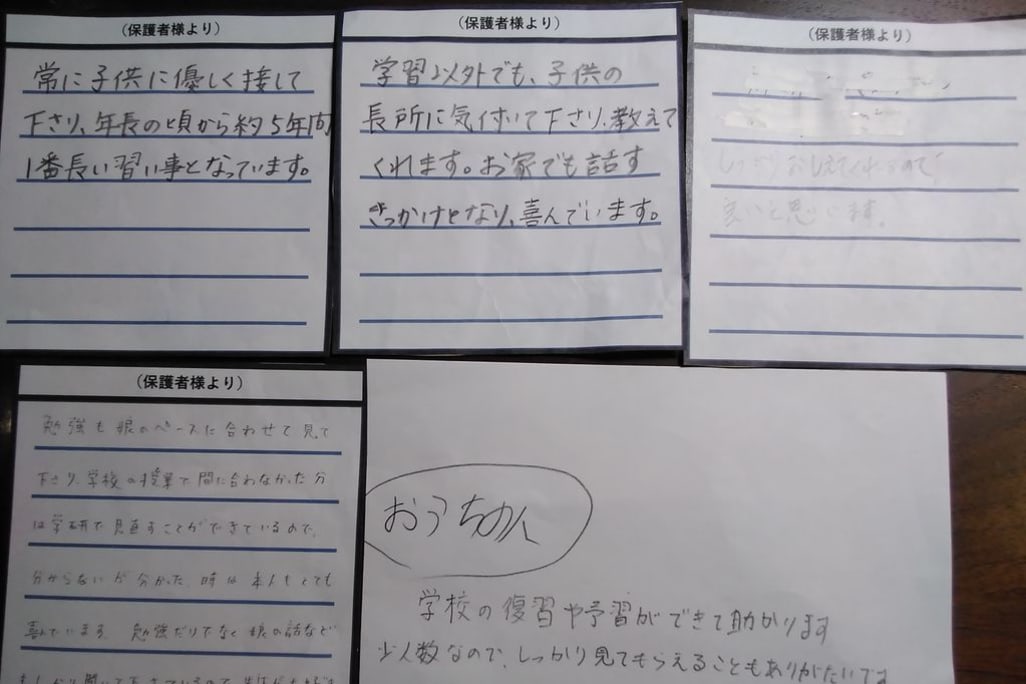 (保護者様より)
常に子供に優しく接して
下さり、年長の頃から約5年間
1番長い習い事となっています。
(保護者様より)
学習以外でも、子供の
長所に気付いて下さり、教えて
くれます。お家でも話す
きっかけとなり、喜んでいます。
(保護者様より)
しっかりおしえてくれるので、
良いと思います。
(保護者様より)
勉強も娘のペースに合わせて見て
下さり、学校の授業で間に合わなかった分
は学研で見直すことができているので、
分からないが分かった時は本人もとても
喜んでいます。勉強だけでなく娘の話など
おうちの人
学校の復習や予習ができて助かります
少人数なので、しっかり見てもらえることもありがたいです